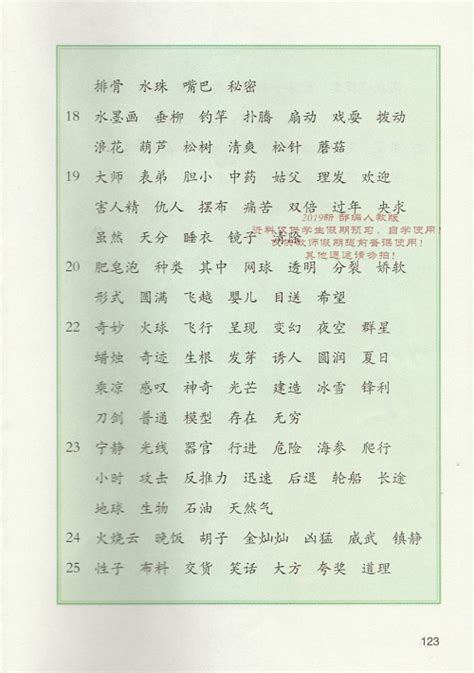 排骨 水珠 嘴巴 秘密
18 水墨画 垂柳 钓竿 扑腾 扇动 戏耍 拨动
浪花 葫芦 松树 清爽 松针 蘑菇
19 大师 表弟 胆小 中药 姑父 理发 欢迎
害人精 仇人 摆布 痛苦 双倍 过年 央求
虽然 天分 睡衣 镜子 清脆
2019新 部编人教版
资料仅供学生假期预习，自学使用！
仅供教师假期提前备课使用！
其他通途请勿拍！
20 肥皂泡 种类 其中 网球 透明 分裂 娇软
形式 圆满 飞越 婴儿 目送 希望
22 奇妙 火球 飞行 呈现 变幻 夜空 群星
蜡烛 奇迹 生根 发芽 诱人 圆润 夏日
乘凉 感叹 神奇 光芒 建造 冰雪 锋利
刀剑 普通 模型 存在 无穷
23 宁静 光线 器官 行进 危险 海参 爬行
小时 攻击 反推力 迅速 后退 轮船 长途
地球 生物 石油 天然气
24 火烧云 晚饭 胡子 金灿灿 凶猛 威武 镇静
25 性子 布料 交货 笑话 大方 夸奖 道理
123